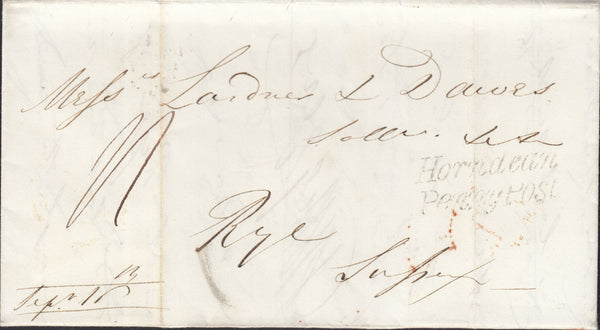 Messrs Lardner & Dawes
Sollrs &c &c
Horndean
Penny Post
Rye
Sussex